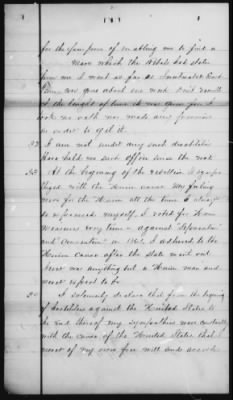 for the purpose of enabling me to find a
mare which the Rebels had stolen
from me I went as far as
I was gone about one week
of the length of time it was given for I
took no oath nor made any promise
in order to get it.
I am not under any such disabilities
have held no such office since the war
At the beginning of the rebellion I sympa
thized with the Union cause My feeling
were for the Union all the time I always
so expressed myself. I voted for Union
measures every time against "Separation"
and "Convention" in 1861. I adhered to the
Union cause after the state went out
never was anything but a Union man and
never expect to be
I solemnly declare that from the beginning
of hostilities against the United States to
the end thereof my sympathies were constantly
with the cause of the United States, that I
never of my own free will and accord